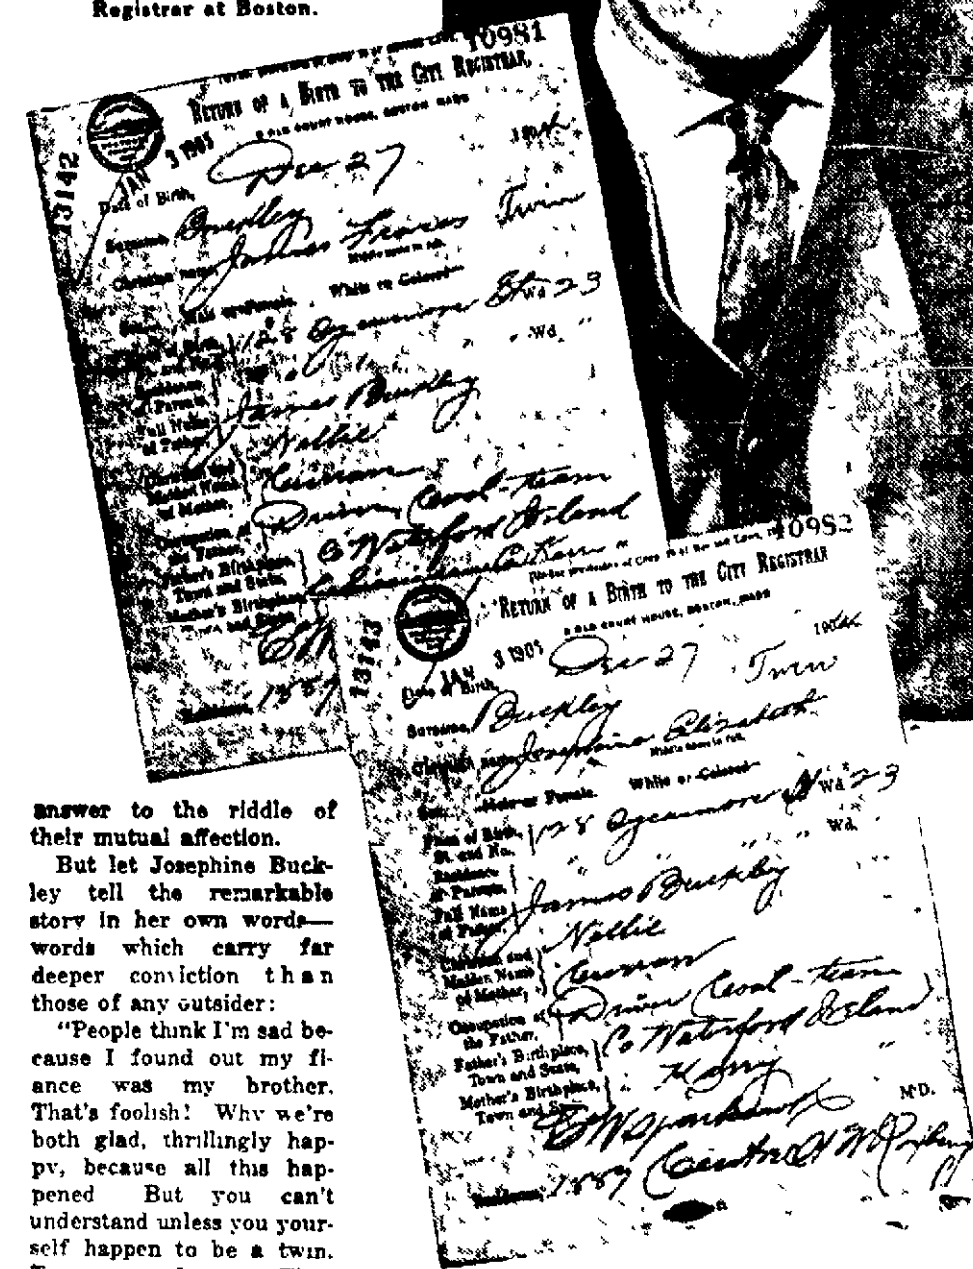 Registrar at Boston.
10981
RETURN OF A BIRTH TO THE CITY REGISTRAR,
OLD COURT HOUSE, BOSTON, MASS
13142
JAN 3 1905
Date of Birth, Dec 27
Surname, Buckley Twin
Christian name, James Francis
Middle name in full.
White or Colored
128 Sycamore St Wd 23
" Wd. "
Residence of Parents,
Full Name of Father, James Buckley
Nellie
Christian and Maiden Name of Mother, Curran
Occupation of the Father, Driver Coal-team
Father's Birthplace, Town and State, Co Waterford Ireland
Mother's Birthplace, Co. Kerry "
1887
10982
RETURN OF A BIRTH TO THE CITY REGISTRAR
OLD COURT HOUSE, BOSTON, MASS
13143
JAN 3 1905
Date of Birth, Dec 27
Twin
Surname, Buckley
Christian name, Josephine Elizabeth
Middle name in full.
Male or Female. White or Colored
Place of Birth, St. and No. 128 Sycamore St Wd 23
Residence of Parents, " " " " Wd. "
Full Name of Father, James Buckley
Nellie
Christian and Maiden Name of Mother, Curran
Occupation of the Father, Driver Coal-team
Father's Birthplace, Town and State, Co Waterford Ireland
Mother's Birthplace, Town and State, Kerry "
M.D.
Residence, 1887
answer to the riddle of
their mutual affection.
But let Josephine Buck-
ley tell the remarkable
story in her own words—
words which carry far
deeper conviction than
those of any outsider:
"People think I'm sad be-
cause I found out my fi-
ance was my brother.
That's foolish! Why we're
both glad, thrillingly hap-
py, because all this hap-
pened But you can't
understand unless you your-
self happen to be a twin.